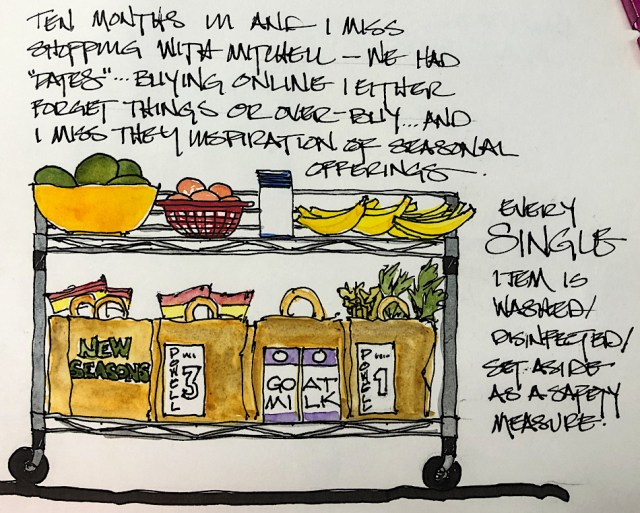 TEN MONTHS IN AND I MISS
SHOPPING WITH MITCHELL — WE HAD
"DATES"... BUYING ONLINE I EITHER
FORGET THINGS OR OVER-BUY... AND
I MISS THEY INSPIRATION OF SEASONAL
OFFERINGS.
EVERY
SINGLE
ITEM IS
WASHED/
DISINFECTED/
SET ASIDE
AS A SAFETY
MEASURE!
NEW
SEASONS
POWELL
3
GO AT
MI LK
POWELL
1